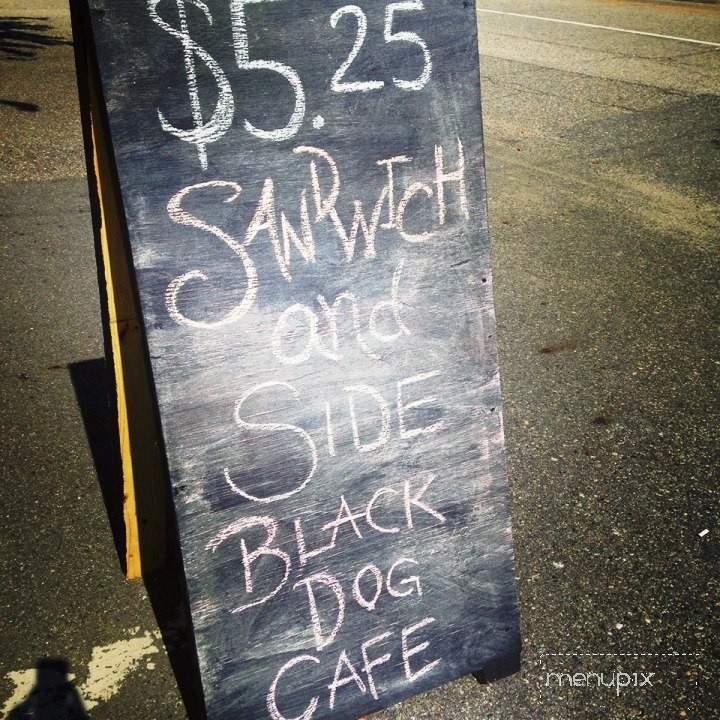 $5.25
SANDWICH
and
SIDE
BLACK
DOG
CAFE
menupix